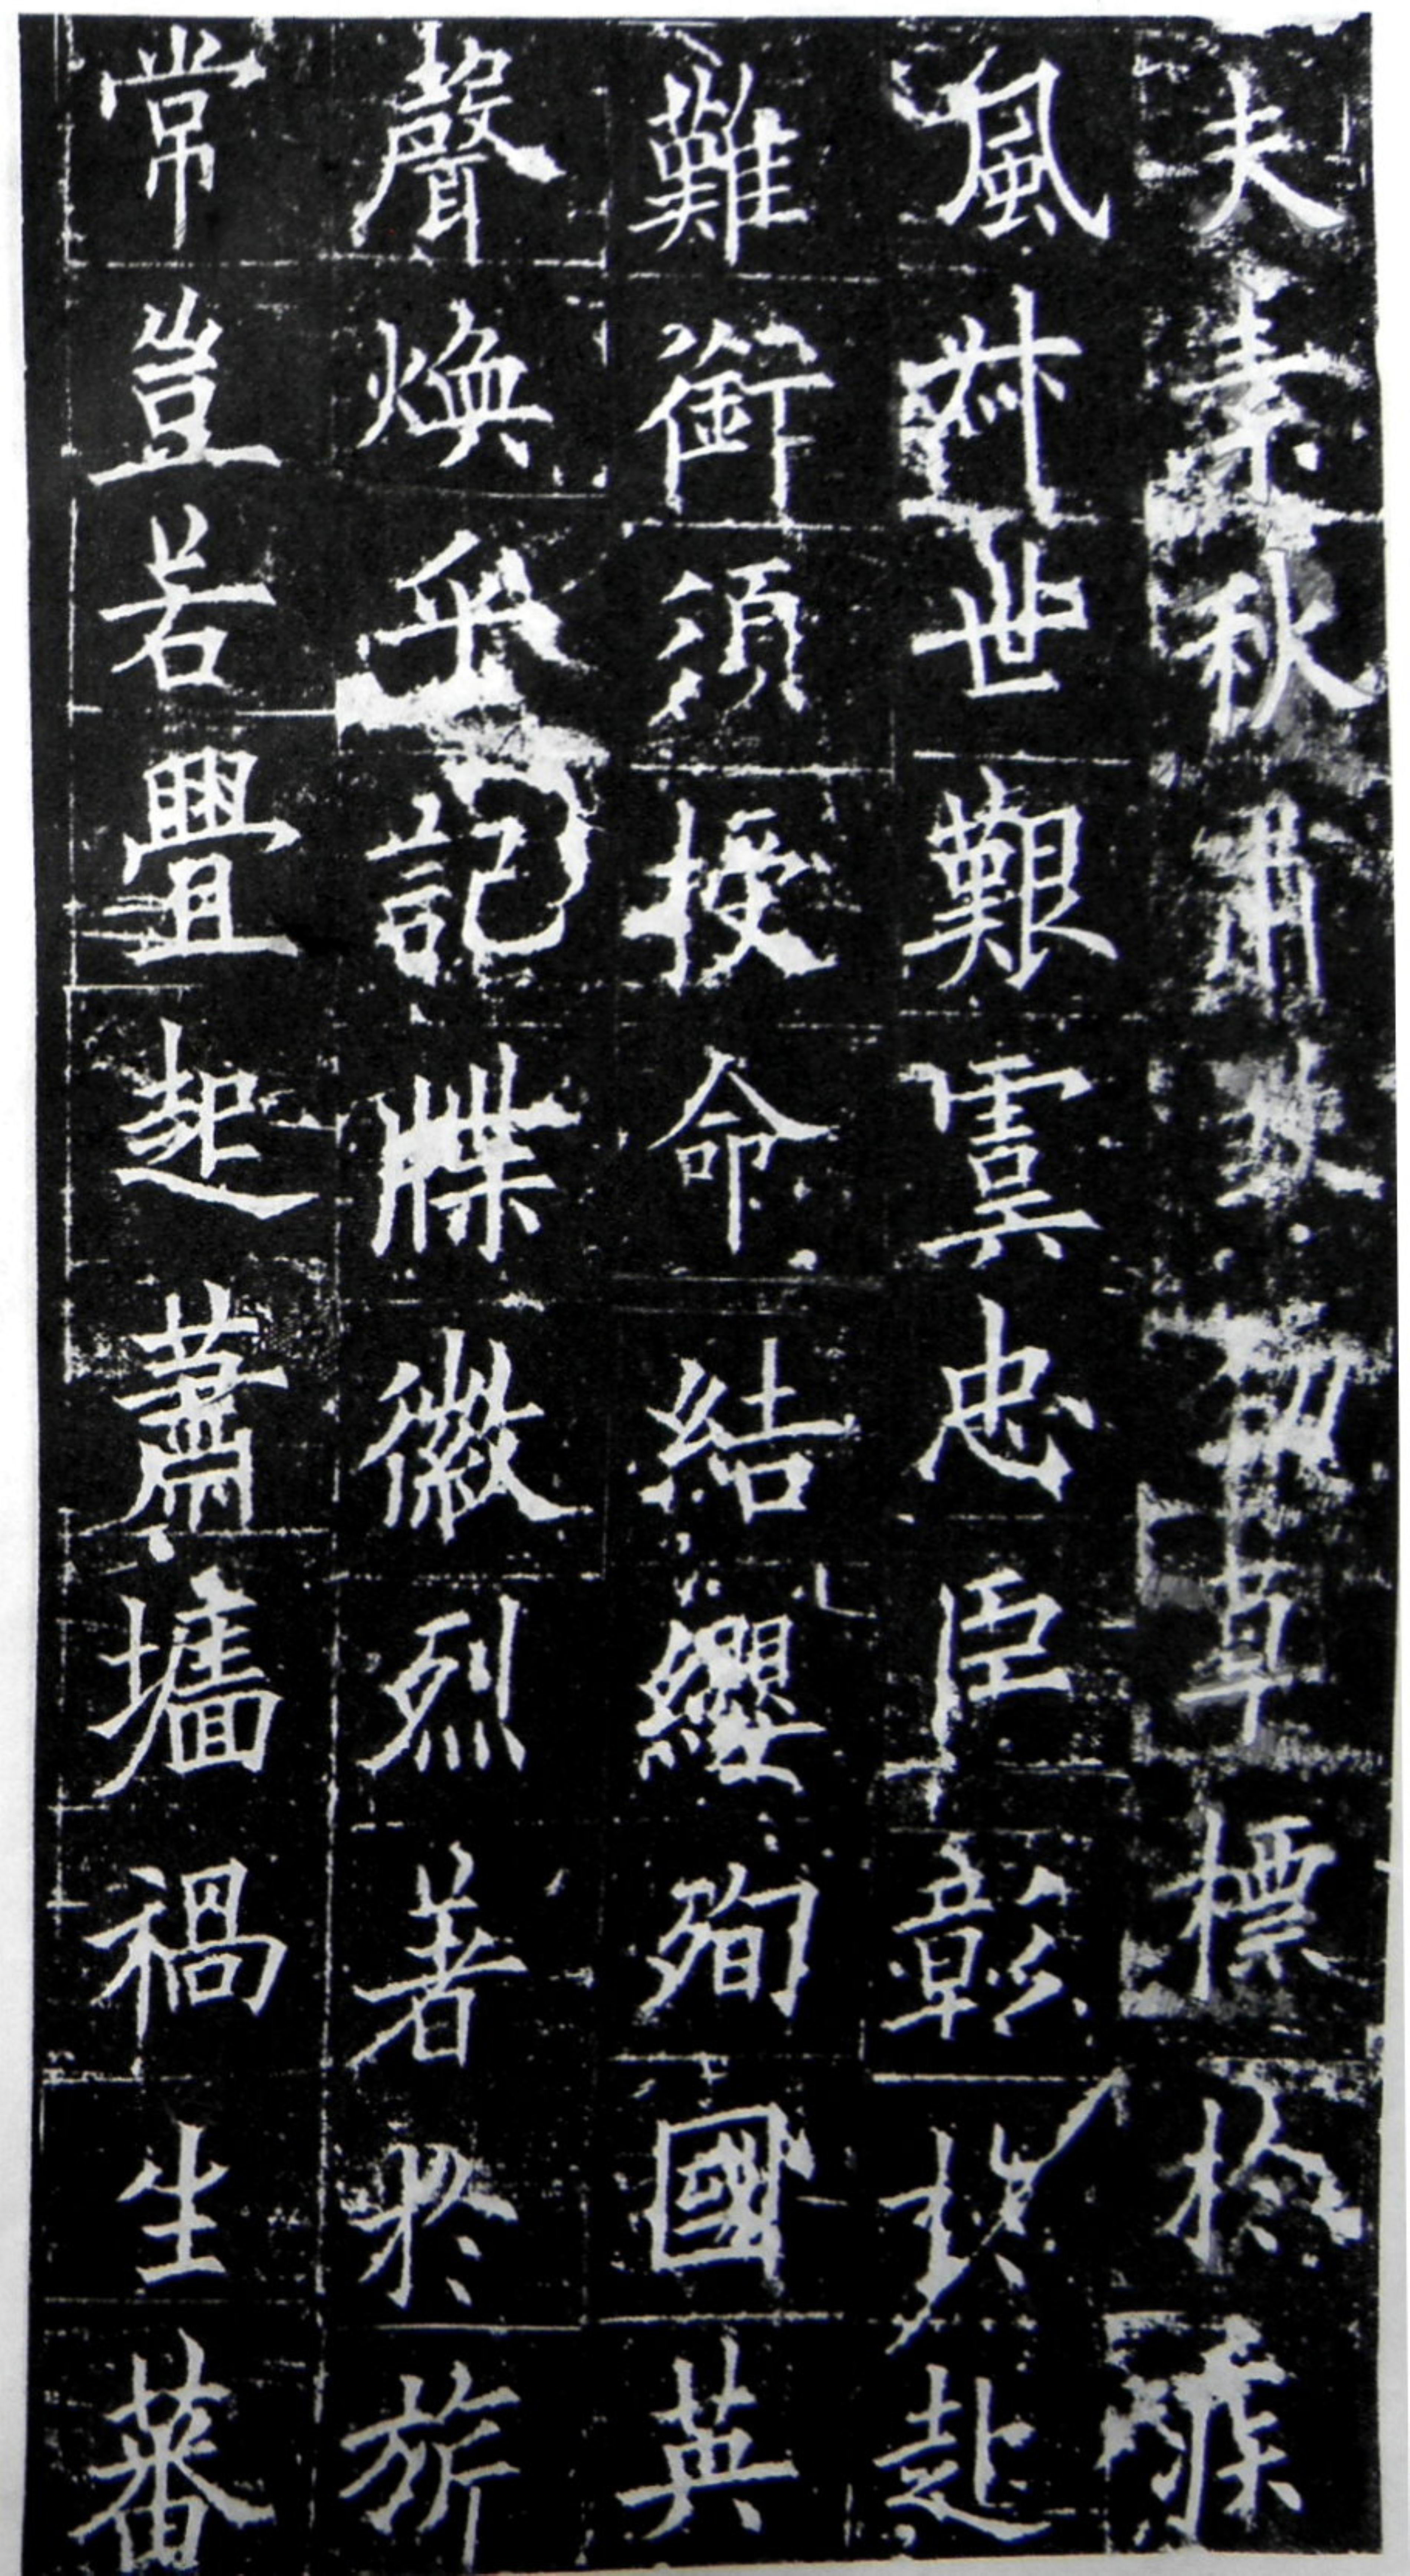 夫素秋肅煞勁草標於疾
風叔世艱虞忠臣彰於赴
難銜須授命結纓殉國英
聲煥乎記牒徽烈著於旂
常豈若疊起蕭墻禍生蕃